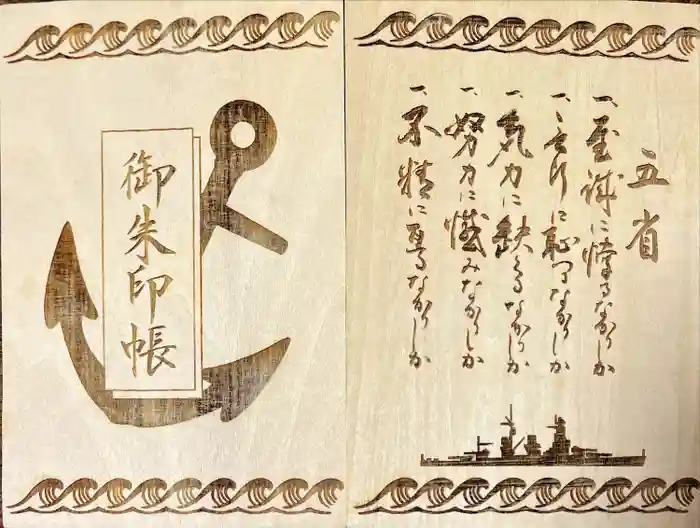 御朱印帳
五省
一、至誠に悖るなかりしか
一、言行に恥づるなかりしか
一、気力に缺くるなかりしか
一、努力に憾みなかりしか
一、不精に亘るなかりしか